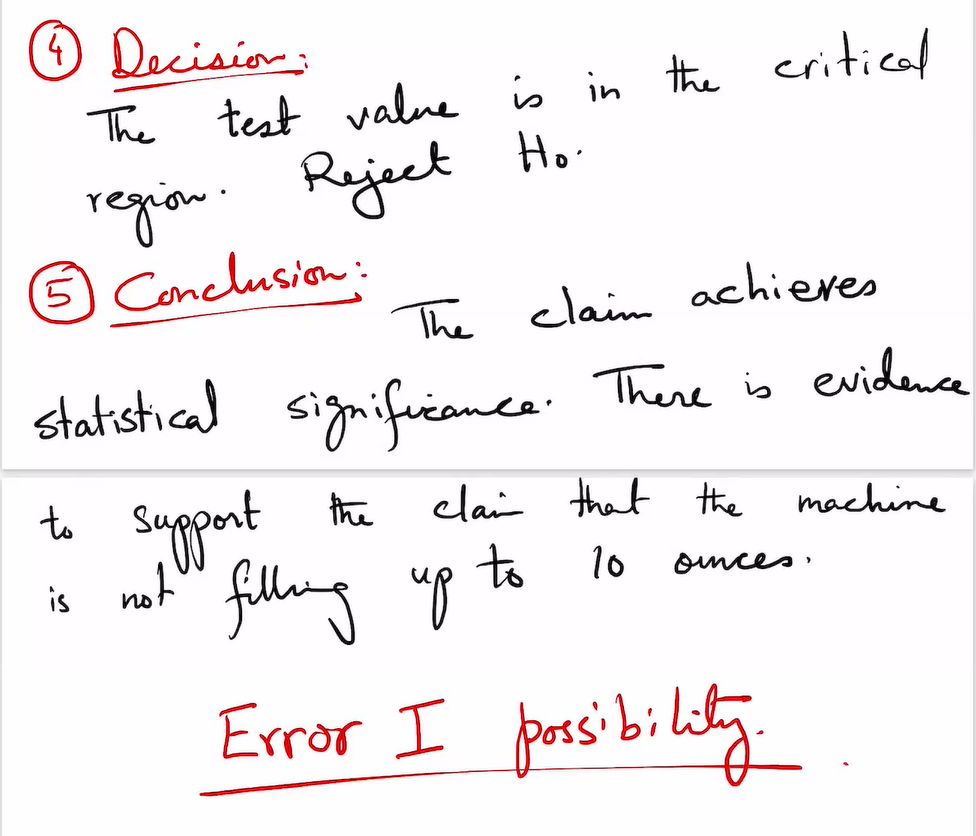 ④ Decision:
The test value is in the critical
region. Reject Ho.
⑤ Conclusion:
The claim achieves
statistical significance. There is evidence
to support the claim that the machine
is not filling up to 10 ounces.
Error I possibility.